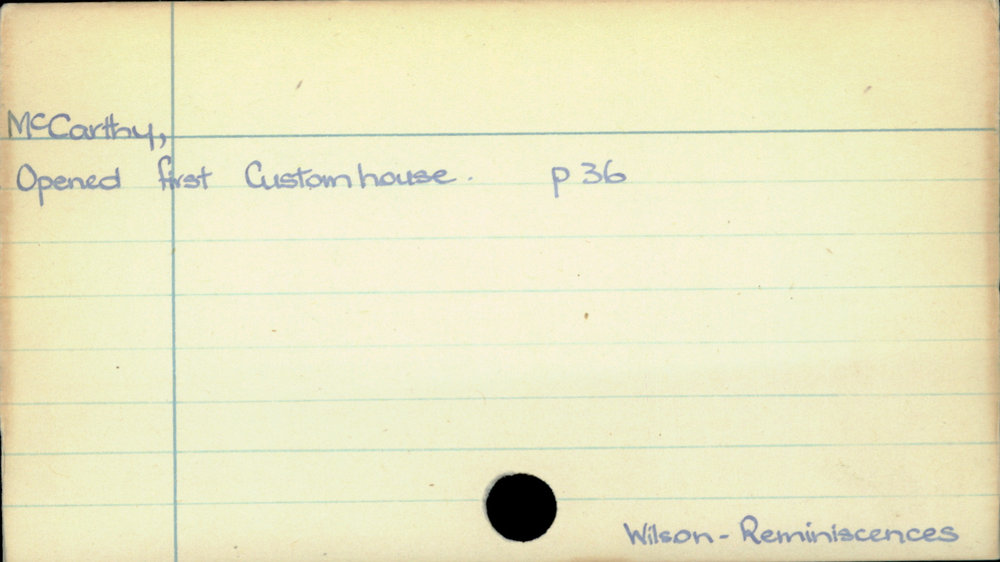 McCarthy,
Opened first Customhouse. p 36
Wilson - Reminiscences